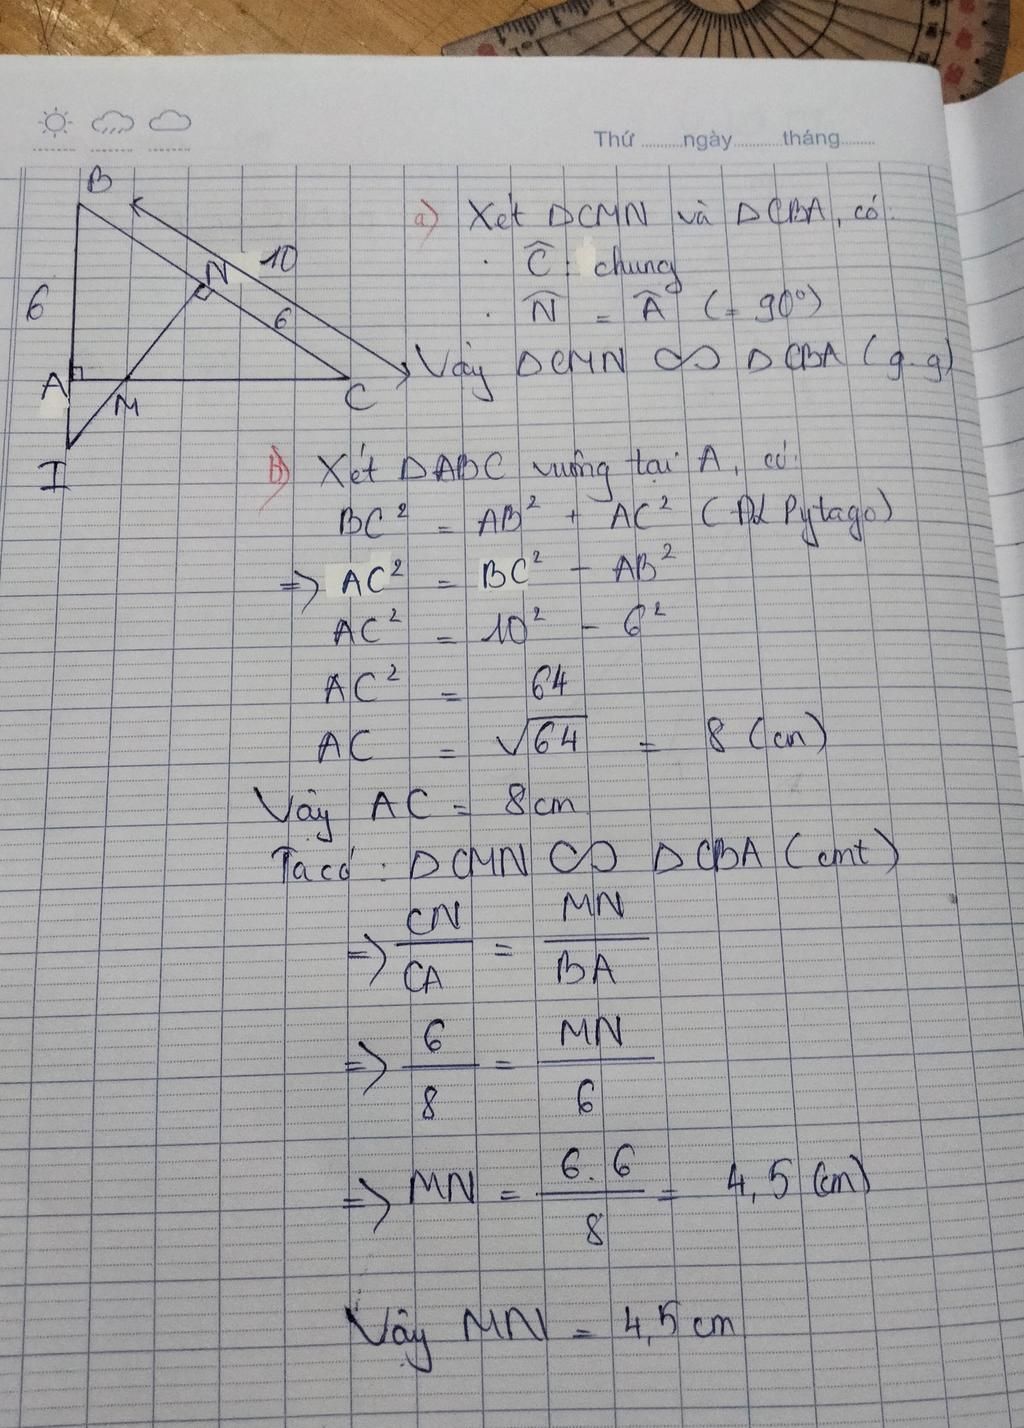 Thứ ........ngày.........tháng........
B
10
N
6
6
A
M
C
I
a) Xét ΔCMN và ΔCBA, có:
. Ĉ : chung
. N̂ = Â (= 90°)
Vậy ΔCMN ∽ ΔCBA (g.g)
b) Xét ΔABC vuông tại A, có:
BC² = AB² + AC² (Đl Pytago)
=> AC² = BC² - AB²
AC² = 10² - 6²
AC² = 64
AC = √64 = 8 (cm)
Vậy AC = 8cm
Ta có : ΔCMN ∽ ΔCBA (cmt)
=> CN/CA = MN/BA
=> 6/8 = MN/6
=> MN = 6.6/8 = 4,5 (cm)
Vậy MN = 4,5 cm